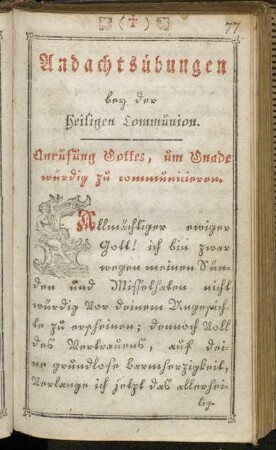 (†) 77
Andachtsübungen
bey der
Heiligen Communion.
Anrufung Gottes, um Gnade
würdig zu communicieren.
Allmächtiger ewiger
Gott! ich bin zwar
wegen meinen Sün-
den und Missethaten nicht
würdig vor deinem Angesich-
te zu erscheinen; dennoch voll
des Vertrauens, auf dei-
ne grundlose Barmherzigkeit,
verlange ich jetzt das allerhei-
lig-